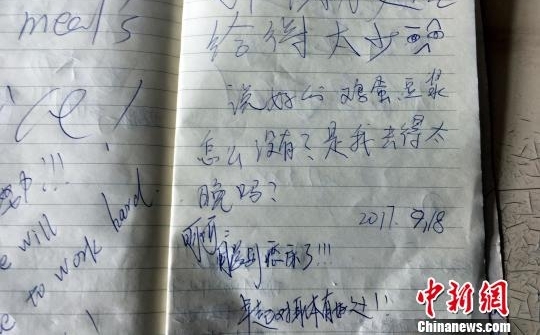 meal's
ice!
!!!
e will
e to work hard.
给得太少
说好的 鸡蛋豆浆
怎么没有？是我去得太
晚吗？
2017.9.18
呵呵：
了!!!
早起对身体有好处!!
中新网
Chinanews.com